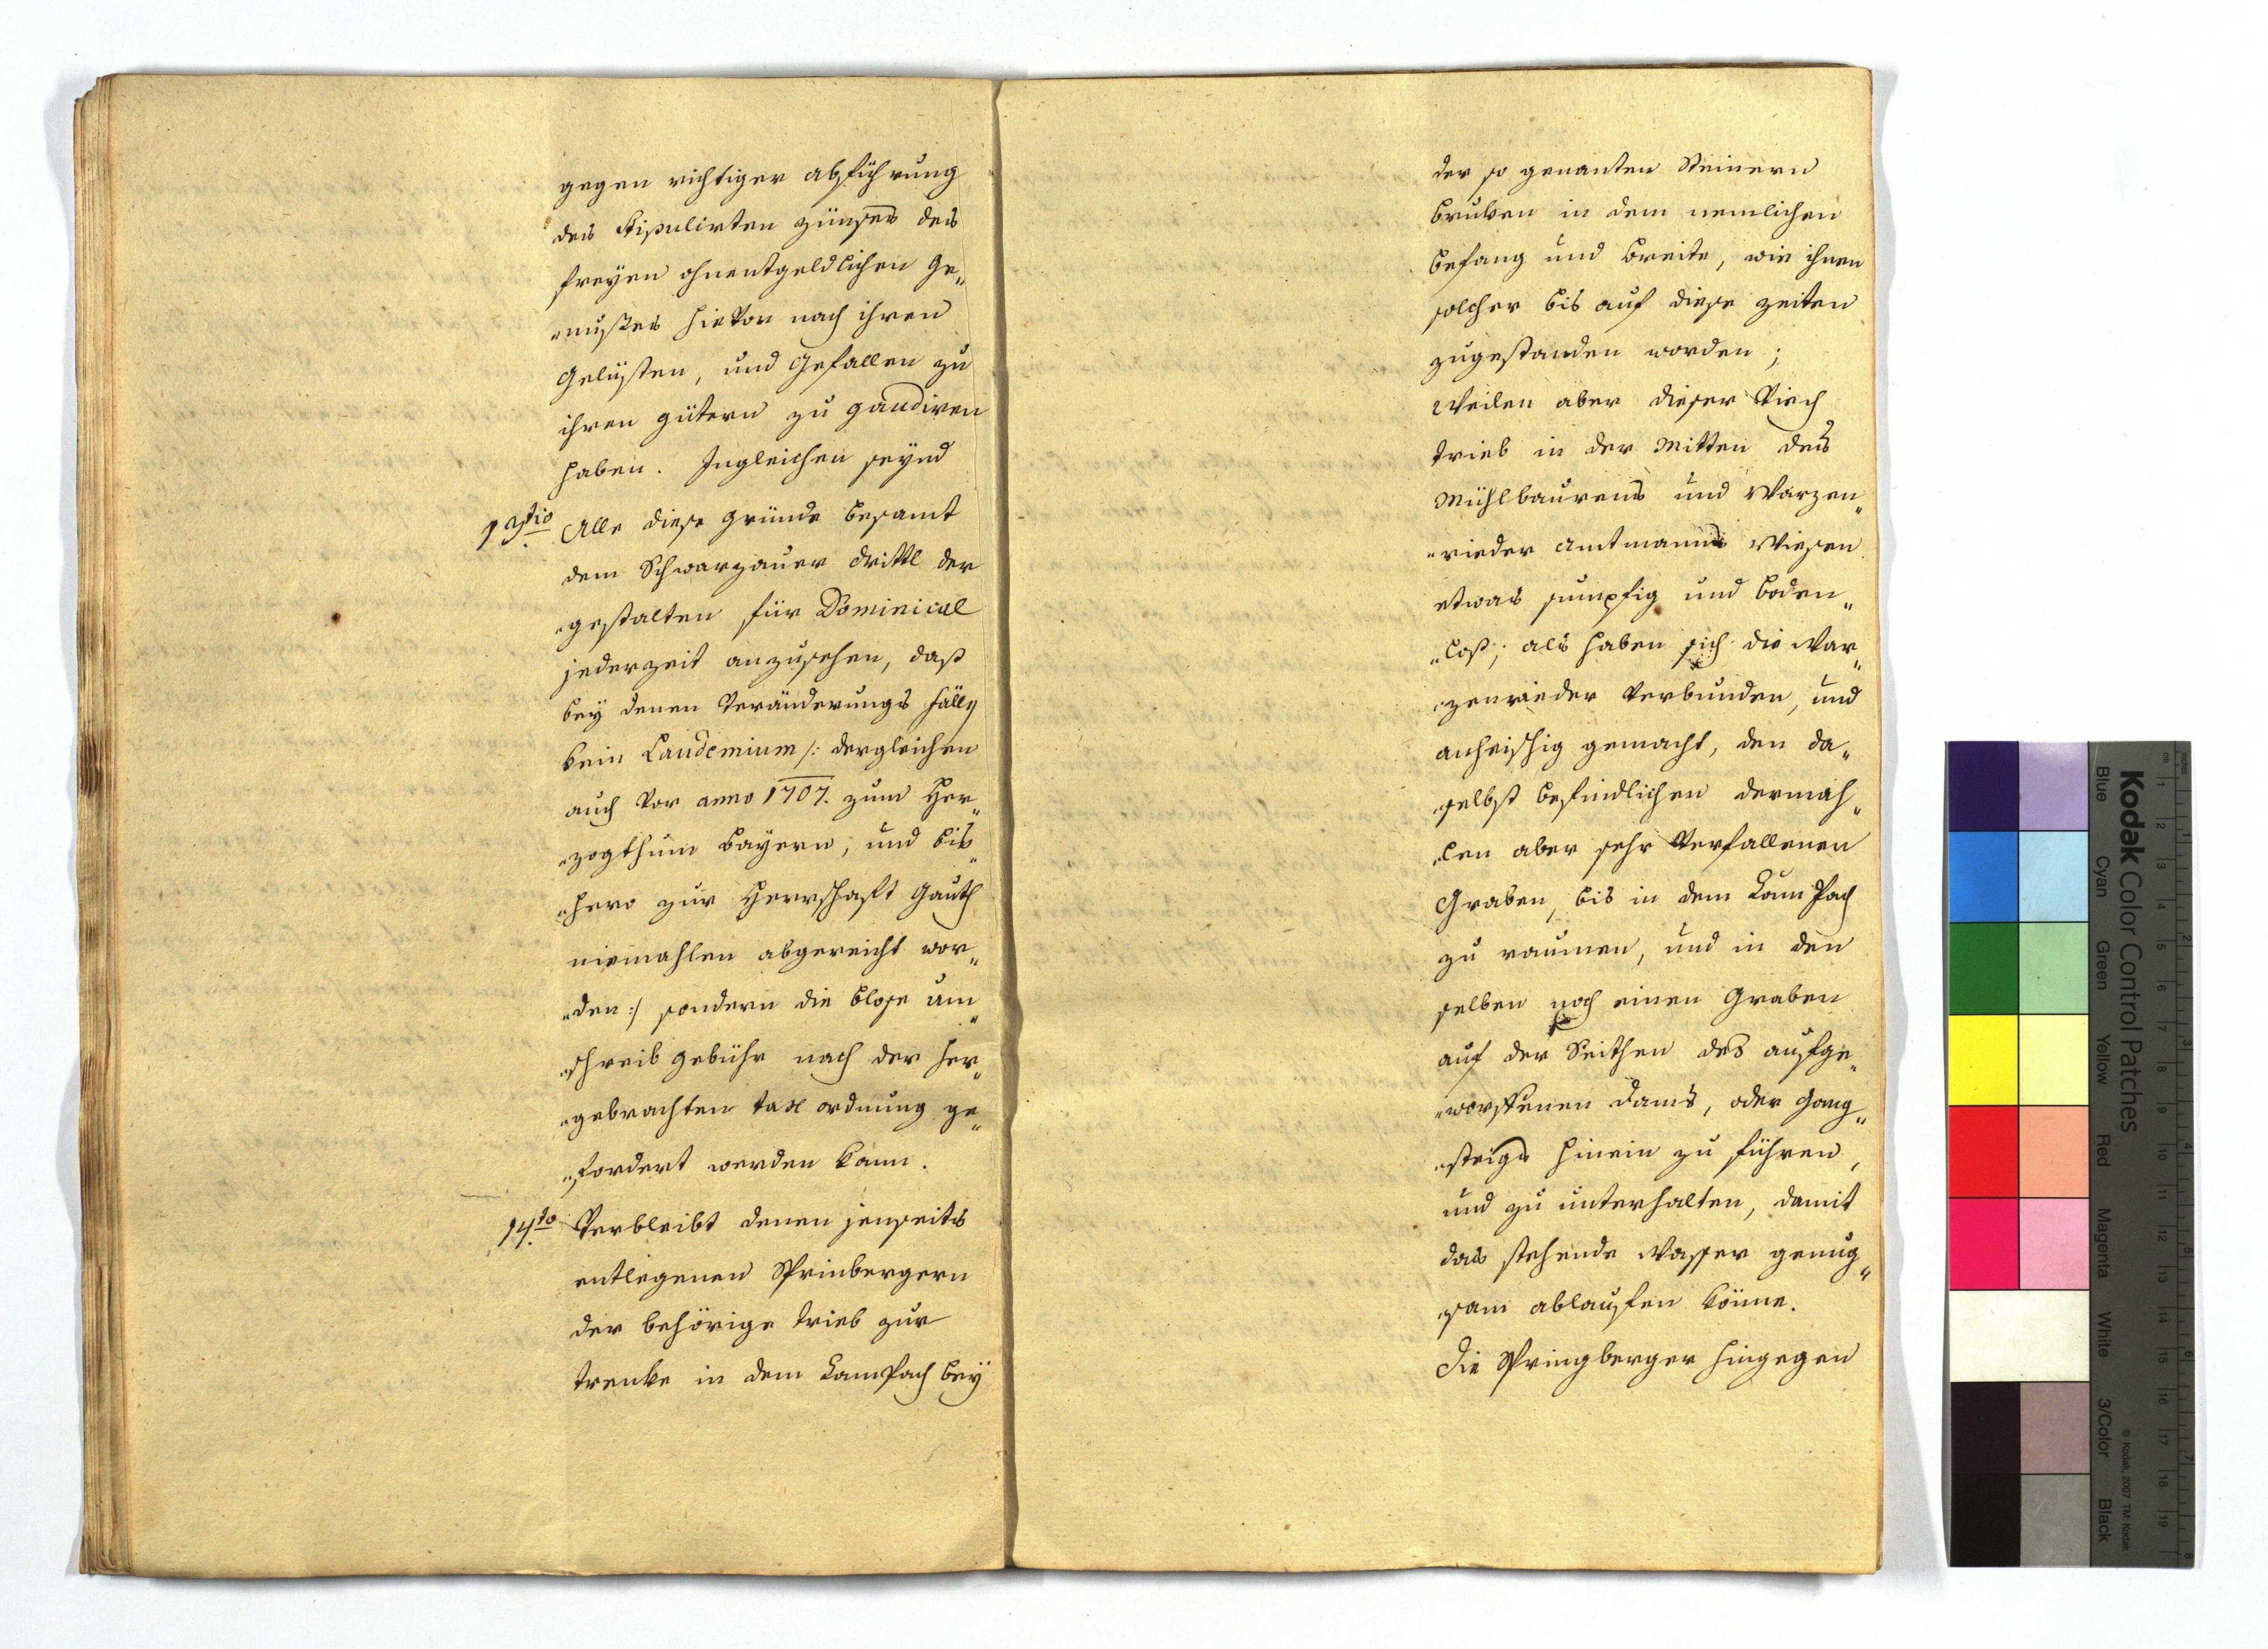 gegen richtiger abführung
des stipulirten zünses des
freyen ohnentgeldlichen Ge„
„nusses hievon nach ihren
Gelüsten, und Gefallen zu
ihren gütern zu gaudiren
haben. Ingleichen seynd
13tio Alle diese gründe besamt
dem Schwarzauer drittl der
„gestalten für Dominical
jederzeit anzusehen, daß
bey denen Veränderungs fälln
kein Laudemium /: dergleichen
auch vor anno 1707. zum Her„
„zogthum bayern, und bis„
„hero zur Herrschaft
niemahlen abgereicht wor„
„den :/ sondern die blose um„
„schreib gebühr nach der her„
„gebrachten tax ordnung ge„
„fordert werden kann.
14to Verbleibt denen jenseits
entlegenen Sprinbergern
der behörige trieb zur
trenke in dem Kampach bey
der so genanten Steinern
bruken in dem nemlichen
befang und breite, wie ihnen
solcher bis auf diese zeiten
zugestanden worden;
Weilen aber dieser Viech
trieb in der Mitten des
Mühlbaurens und Warzen„
„rieder amtmanns Wiesen
etwas sumpfig und boden„
„loß; als haben sich die War„
„zenrieder verbunden, und
anheischig gemacht, den da„
„selbst befindlichen dermah„
„len aber sehr verfallenen
Graben, bis in dem Kampach
zu raumen, und in den
selben noch einen Graben
auf der Seithen des aufge„
„worffenen dams, oder Gang„
„steigs hinein zu führen,
und zu unterhalten, damit
das stehende Wasser genug„
„sam ablaufen könne.
Die Springberger hingegen
Kodak Color Control Patches
Blue Cyan Green Yellow Red Magenta White 3/Color Black
© Kodak, 2007 TM: Kodak